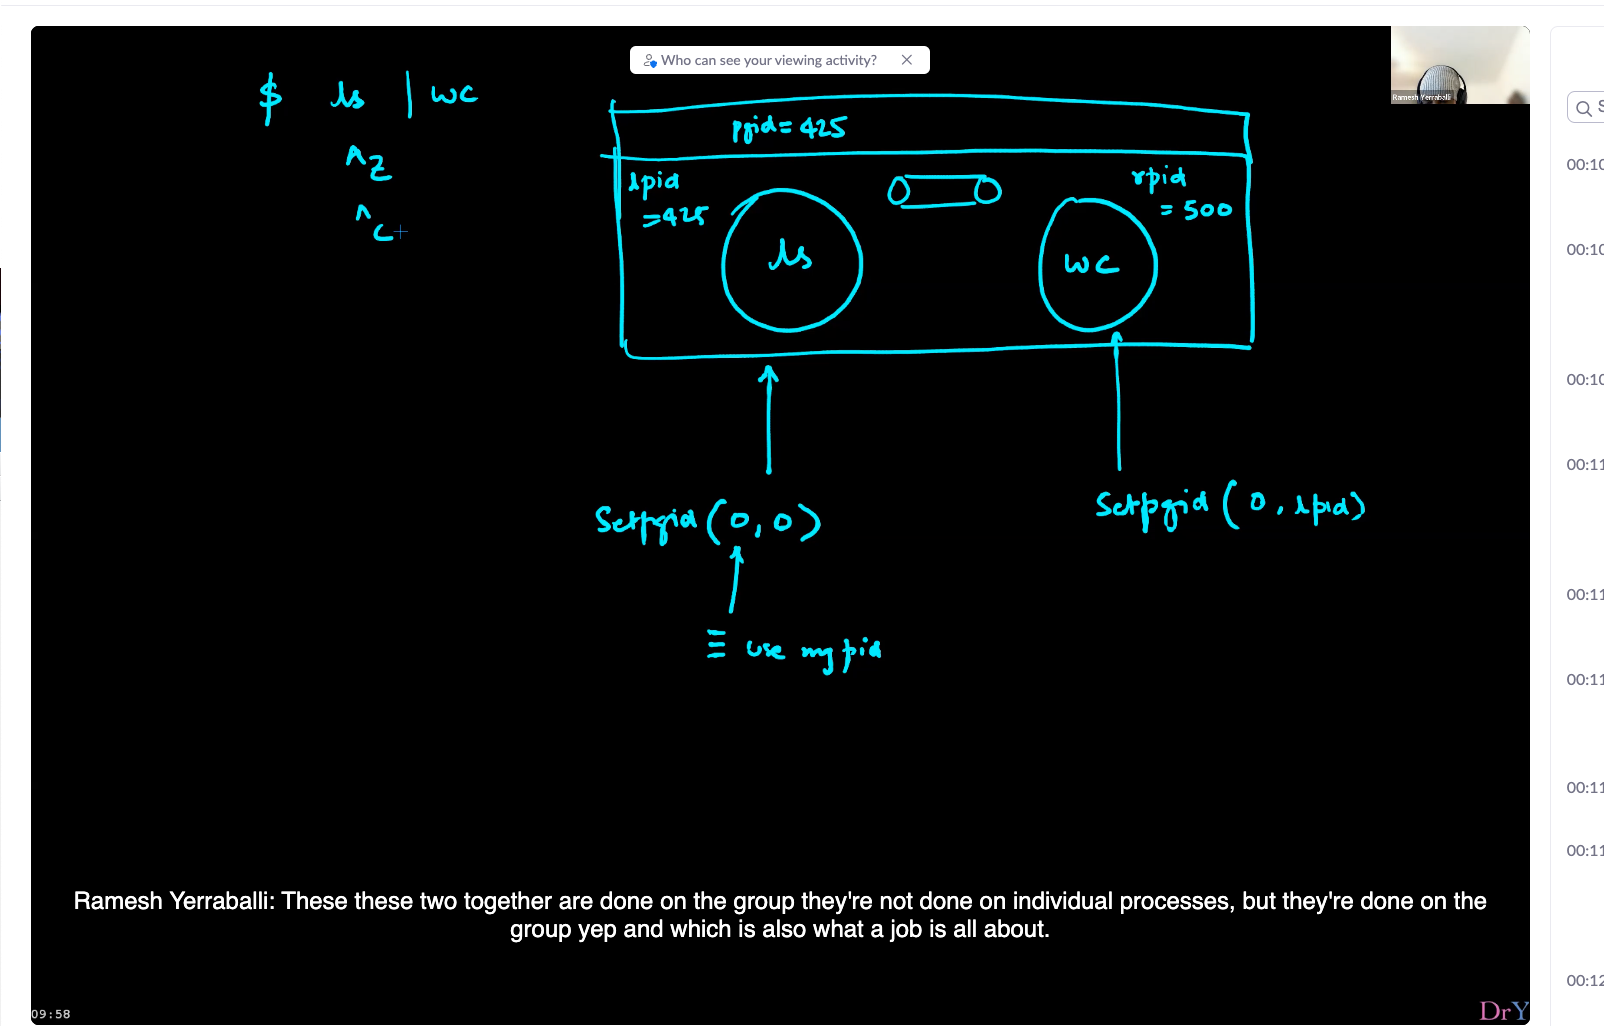 Who can see your viewing activity?
Ramesh Yerraballi
$ ls | wc
^Z
^C
pgid = 425
lpid
= 425
rpid
= 500
ls
wc
Setpgid (0, 0)
Setpgid (0, lpid)
≡ use my pid
Ramesh Yerraballi: These these two together are done on the group they're not done on individual processes, but they're done on the
group yep and which is also what a job is all about.
09:58
DrY
S
00:10
00:10
00:10
00:11
00:11
00:11
00:11
00:11
00:12